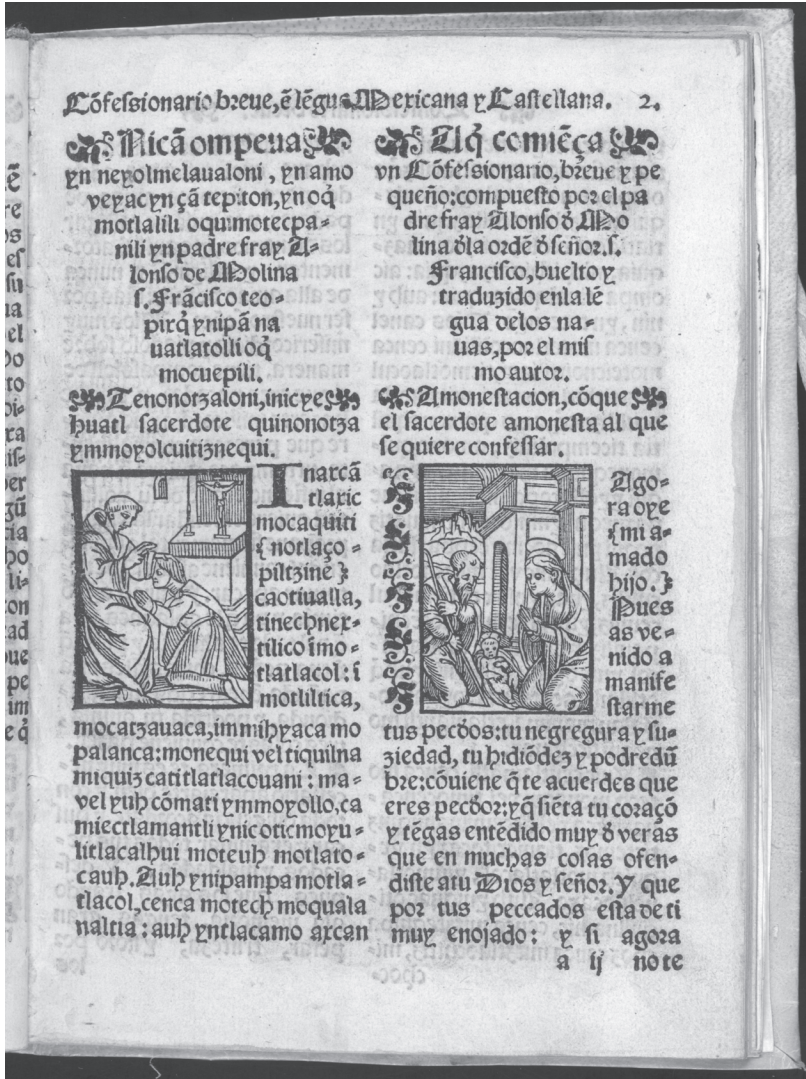 Cõfessionario breue, ẽ lẽgua Mexicana y Castellana. 2.
Nicã ompeua
yn neyolmelaualoni, yn amo
veyac yn çã tepiton, yn oq̃
motlalili oquimotecpa-
nili yn padre fray A-
lonso de Molina
s. Frãcisco teo-
pixq̃ ynipã na
uatlatolli oq̃
mocuepili.
Tenonotzaloni, inic ye
huatl sacerdote quinonotza
ymmoyolcuitiznequi.
Inaxcã
tlaxic
mocaquiti
{notlaço-
piltzine}
caotiualla,
tinechnex-
tilico ĩmo-
tlatlacol: ĩ
motliltica,
mocatzauaca, immihyaca mo
palanca: monequi vel tiquilna
miquiz catitlatlacouani: ma-
vel yuh cõmati ymmoyollo, ca
miectlamantli ynic oticmoyu-
litlacalhui moteuh motlato-
cauh. Auh ynipampa motla-
tlacol, cenca motech moquala
naltia: auh yntlacamo axcan
Aq̃ comiẽça
vn Cõfessionario, breue y pe
queño: compuesto por el pa
dre fray Alonso ð Mo
lina ðla ordẽ ð señor. s.
Francisco, buelto y
traduzido enla lẽ
gua delos na-
uas, por el mis
mo autor.
Amonestacion, cõque
el sacerdote amonesta al que
se quiere confessar.
Ago-
ra oye
{mi a-
mado
hijo.}
Pues
as ve-
nido a
manife
starme
tus pecðos: tu negregura y su-
ziedad, tu hidiõdez y podredũ
bre: cõuiene q̃ te acuerdes que
eres pecðor: yq̃ siẽta tu coraçõ
y tẽgas entẽdido muy ð veras
que en muchas cosas ofen-
diste atu Dios y señor. Y que
por tus peccados esta de ti
muy enojado: y si agora
a ij no te